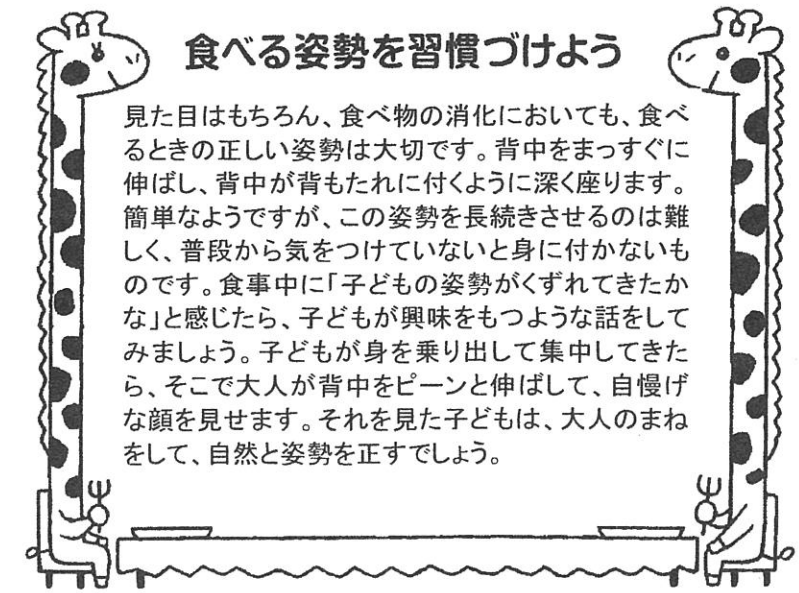 食べる姿勢を習慣づけよう
見た目はもちろん、食べ物の消化においても、食べ
るときの正しい姿勢は大切です。背中をまっすぐに
伸ばし、背中が背もたれに付くように深く座ります。
簡単なようですが、この姿勢を長続きさせるのは難
しく、普段から気をつけていないと身に付かないも
のです。食事中に「子どもの姿勢がくずれてきたか
な」と感じたら、子どもが興味をもつような話をして
みましょう。子どもが身を乗り出して集中してきた
ら、そこで大人が背中をピーンと伸ばして、自慢げ
な顔を見せます。それを見た子どもは、大人のまね
をして、自然と姿勢を正すでしょう。